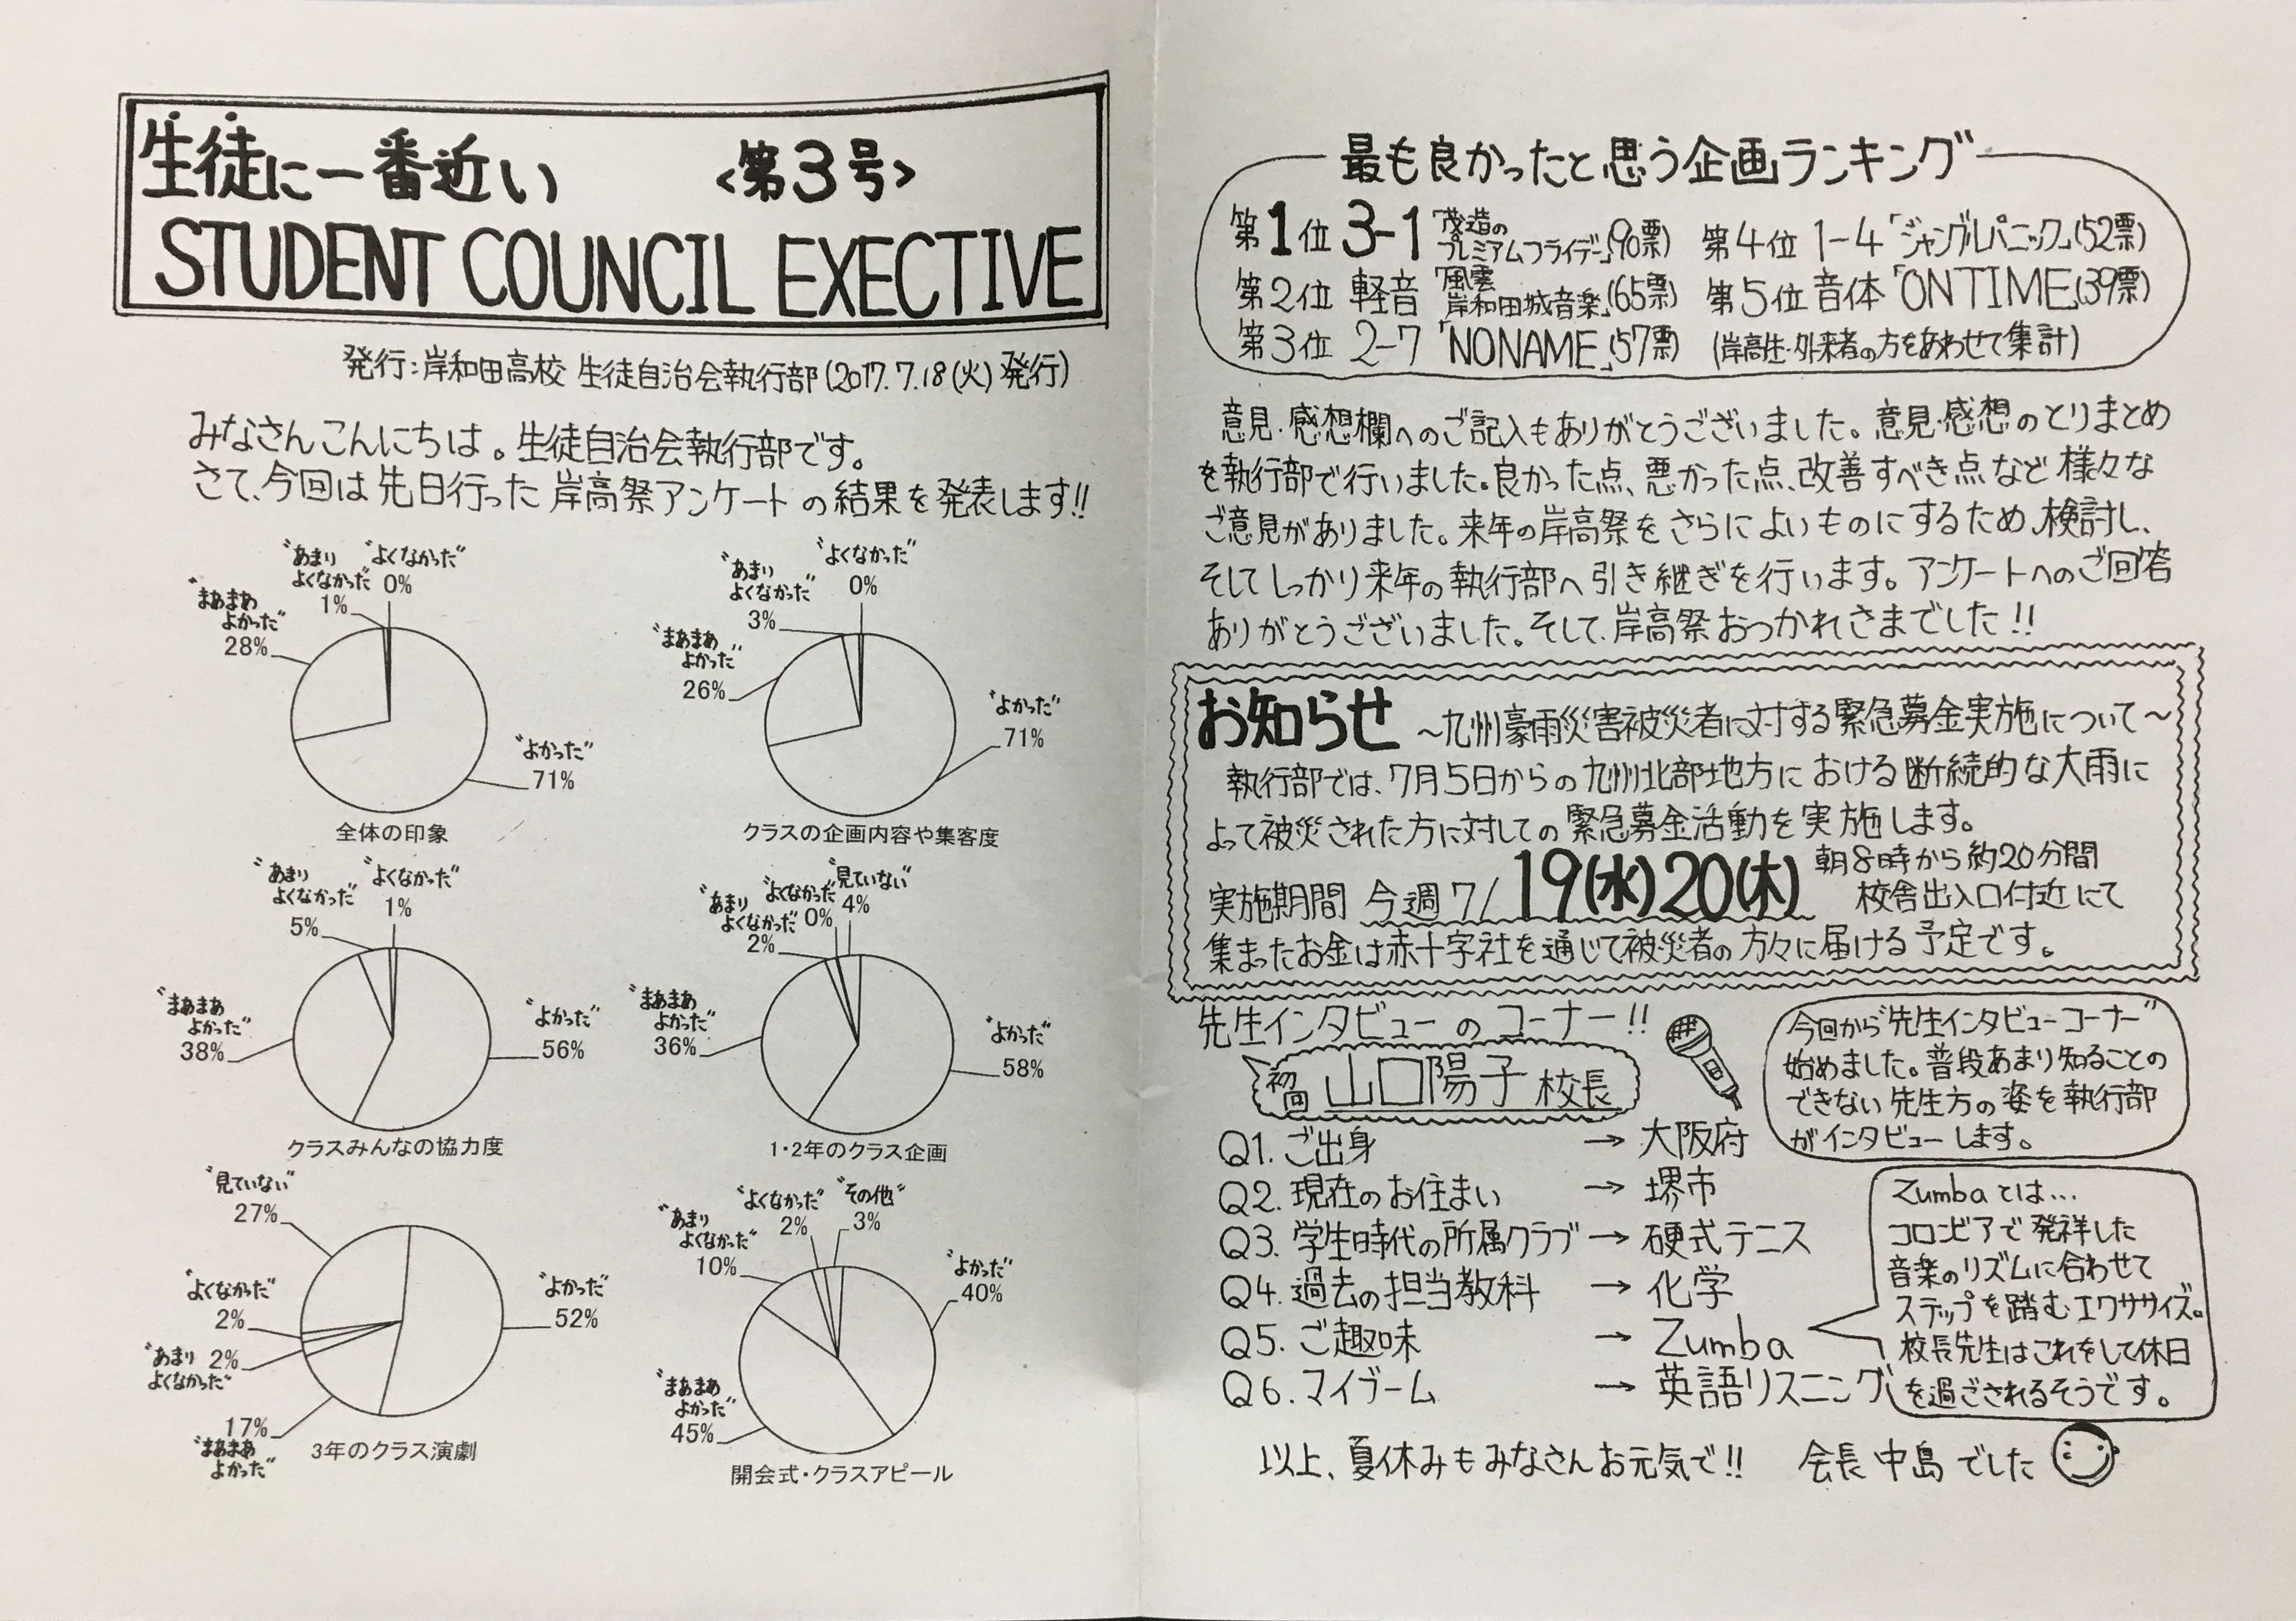 生徒に一番近い <第3号>
STUDENT COUNCIL EXECTIVE
発行:岸和田高校 生徒自治会執行部(2017.7.18(火)発行)
みなさんこんにちは。生徒自治会執行部です。
さて、今回は先日行った岸高祭アンケートの結果を発表します!!
"あまりよくなかった" 1%
"よくなかった" 0%
"まあまあよかった" 28%
"よかった" 71%
全体の印象
"あまりよくなかった" 3%
"よくなかった" 0%
"まあまあよかった" 26%
"よかった" 71%
クラスの企画内容や集客度
"あまりよくなかった" 5%
"よくなかった" 1%
"まあまあよかった" 38%
"よかった" 56%
クラスみんなの協力度
"あまりよくなかった" 2%
"よくなかった" 0%
"見ていない" 4%
"まあまあよかった" 36%
"よかった" 58%
1・2年のクラス企画
"見ていない" 27%
"よくなかった" 2%
"あまりよくなかった" 2%
17% "まあまあよかった"
"よかった" 52%
3年のクラス演劇
"あまりよくなかった" 10%
"よくなかった" 2%
"その他" 3%
"よかった" 40%
"まあまあよかった" 45%
開会式・クラスアピール
最も良かったと思う企画ランキング
第1位 3-1「茂造のプレミアムフライデー」(90票)
第2位 軽音「風雲岸和田城音楽」(65票)
第3位 2-7「NONAME」(57票)
第4位 1-4「ジャングルパニック」(52票)
第5位 音体「ON TIME」(39票)
(岸高生・外来者の方をあわせて集計)
意見・感想欄へのご記入もありがとうございました。意見・感想のとりまとめ
を執行部で行いました。良かった点、悪かった点、改善すべき点など様々な
ご意見がありました。来年の岸高祭をさらによいものにするため、検討し、
そしてしっかり来年の執行部へ引き継ぎを行います。アンケートへのご回答
ありがとうございました。そして、岸高祭おつかれさまでした!!
お知らせ ~九州豪雨災害被災者に対する緊急募金実施について~
執行部では、7月5日からの九州北部地方における断続的な大雨に
よって被災された方に対しての緊急募金活動を実施します。
実施期間 今週7/19(水)20(木) 朝8時から約20分間
校舎出入口付近にて
集まったお金は赤十字社を通じて被災者の方々に届ける予定です。
先生インタビューのコーナー!!
初回 山口陽子校長
今回から"先生インタビューコーナー"
始めました。普段あまり知ることの
できない先生方の姿を執行部
がインタビューします。
Q1. ご出身 → 大阪府
Q2. 現在のお住まい → 堺市
Q3. 学生時代の所属クラブ → 硬式テニス
Q4. 過去の担当教科 → 化学
Q5. ご趣味 → Zumba
Q6. マイブーム → 英語リスニング
Zumbaとは…
コロンビアで発祥した
音楽のリズムに合わせて
ステップを踏むエクササイズ。
校長先生はこれをして休日
を過ごされるそうです。
以上、夏休みもみなさんお元気で!! 会長 中島でした